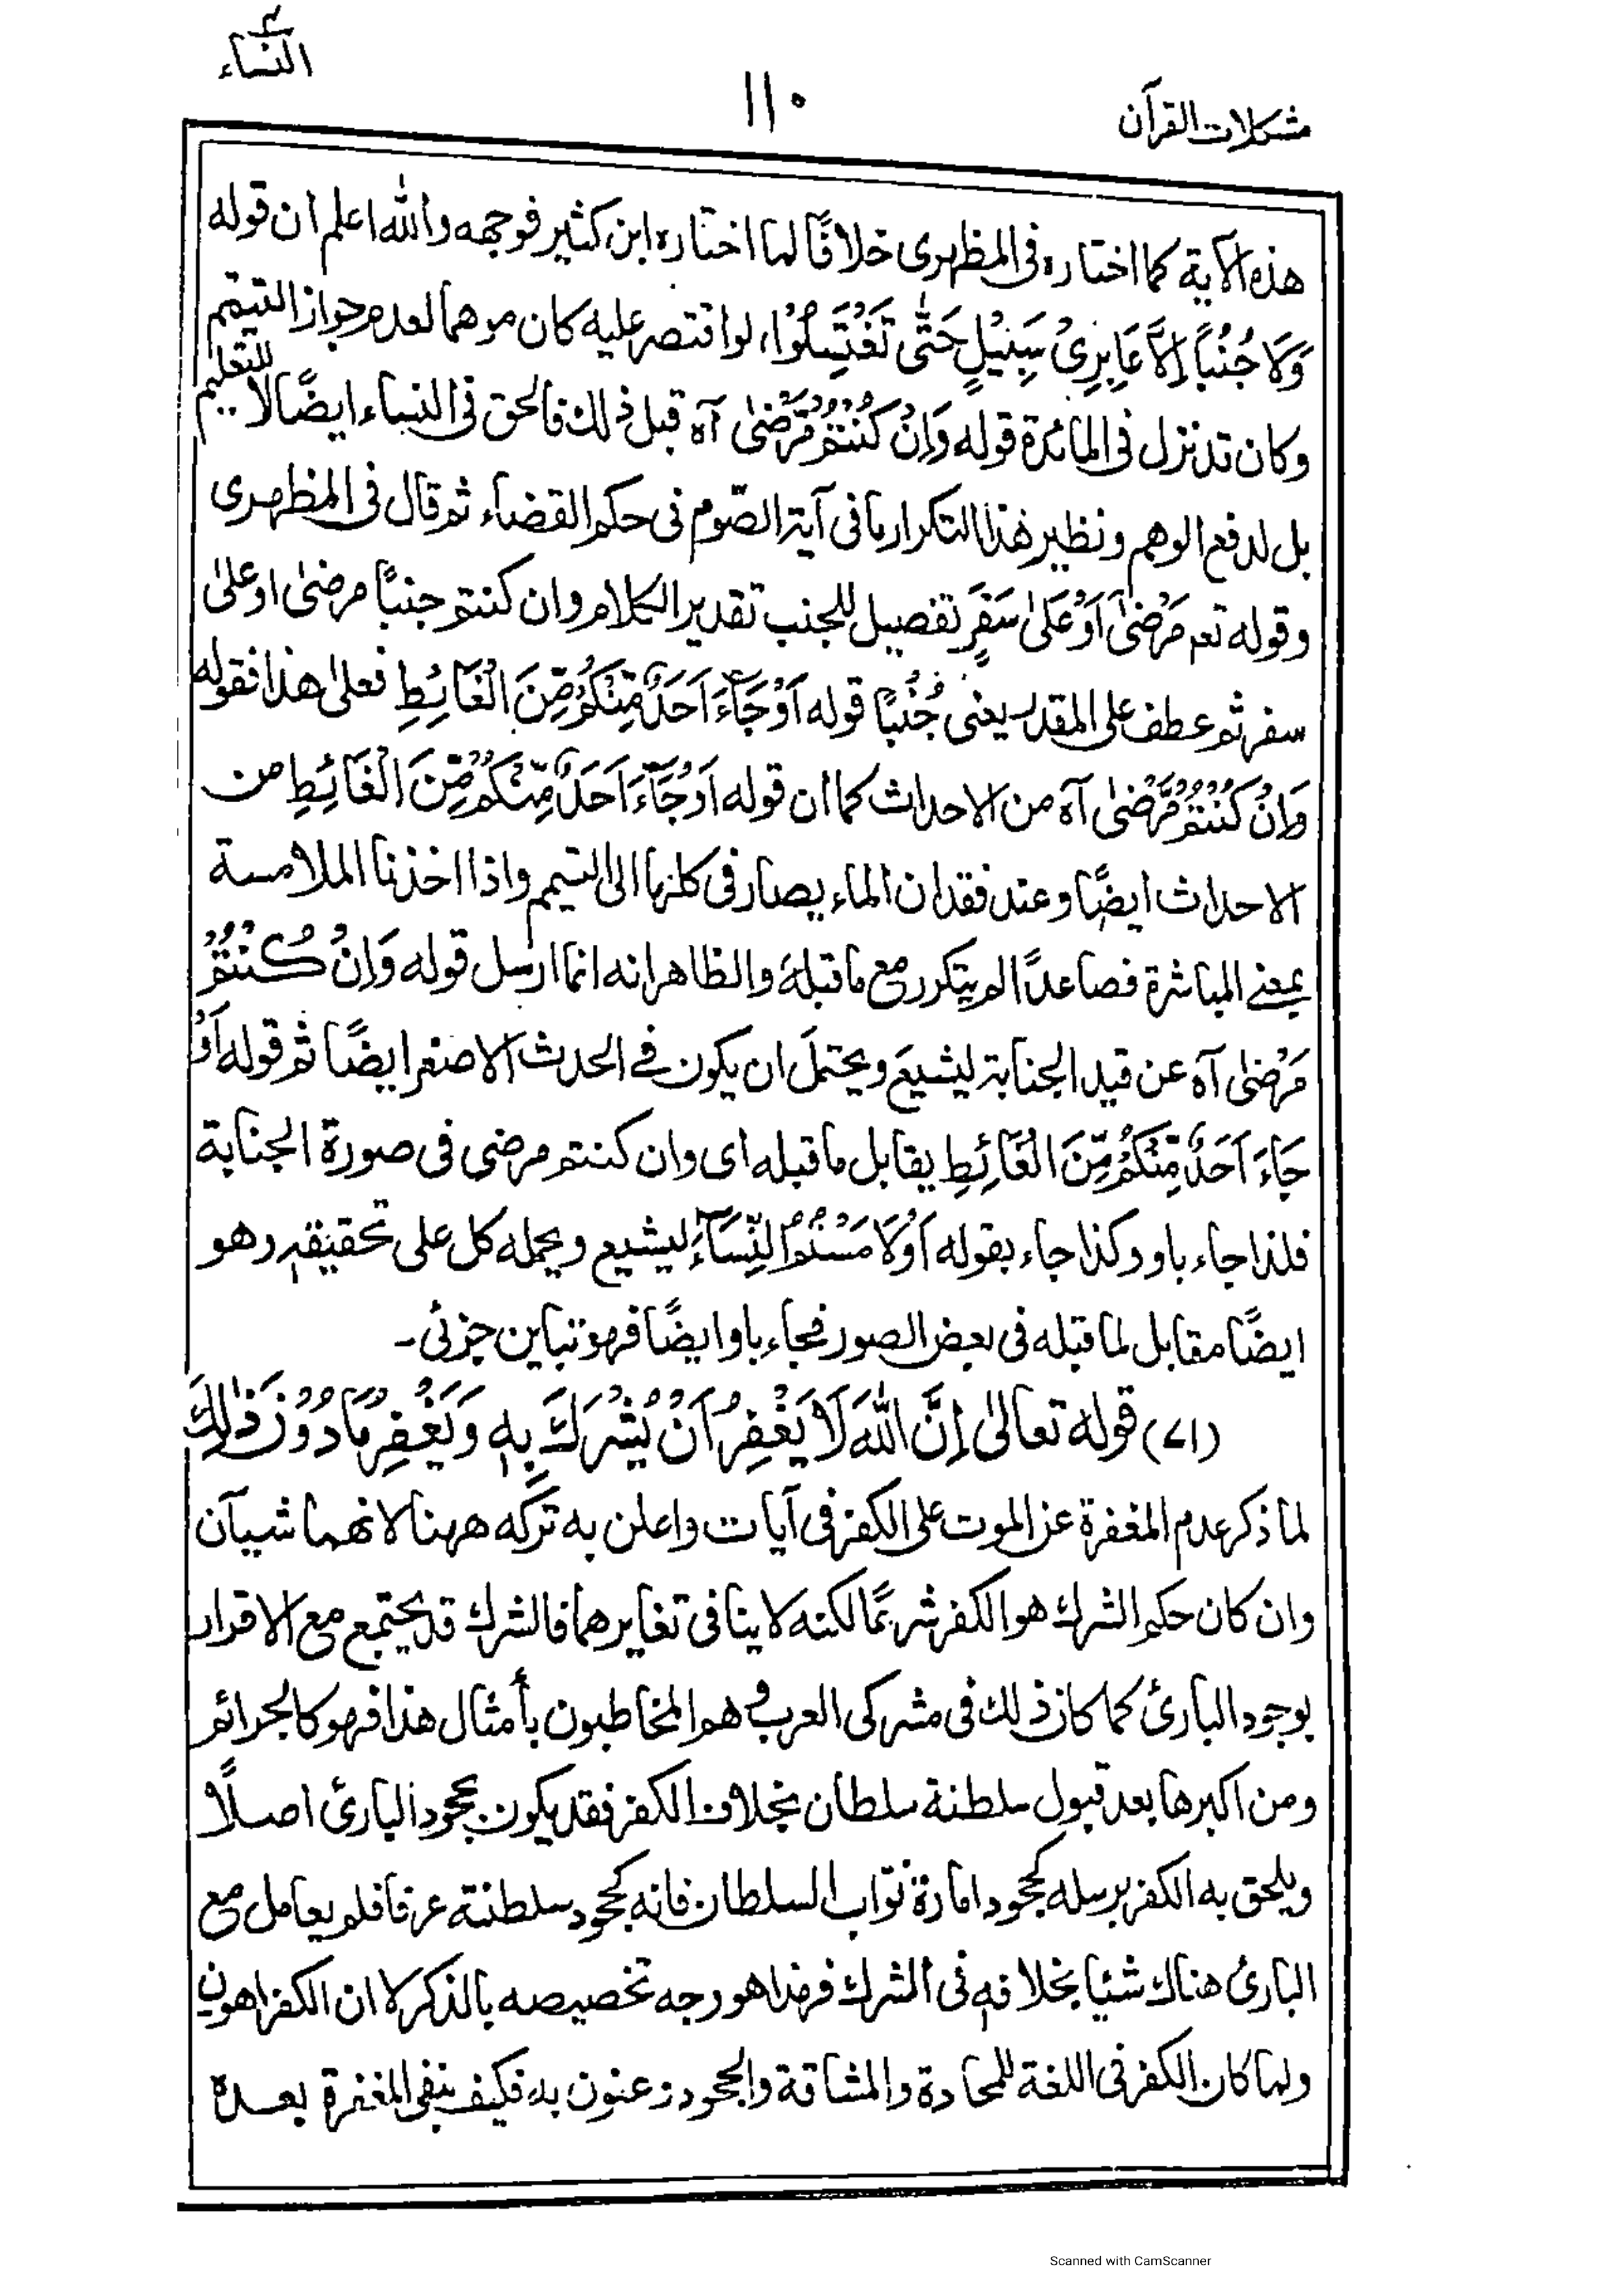 النساء ٤
١١٠
مشكلات القرآن
هذه الآية كما اختاره فى المظهرى خلافًا لما اختاره ابن كثير فوجهه والله اعلم ان قوله
وَلَا جُنُبًا اِلَّا عَابِرِىْ سَبِيْلٍ حَتّٰى تَغْتَسِلُوْا، لو اقتصر عليه كان موهما لعدم جواز التيمم
وكان قد نزل فى المائدة قوله وَاِنْ كُنْتُمْ مَّرْضٰى آه قبل ذلك فالحق فى النساء ايضًا لا للتعليم
بل لدفع الوهم ونظير هذا التكرار ما فى آية الصّوم فى حكم القضاء ثم قال فى المظهرى
وقوله تعم مَرْضٰى اَوْ عَلٰى سَفَرٍ تفصيل للجنب تقدير الكلام وان كنتم جنبًا مرضىٰ او علىٰ
سفر ثم عطف على المقدر يعنى جُنُبًا قوله اَوْ جَآءَ اَحَدٌ مِّنْكُمْ مِّنَ الْغَآئِطِ فعلىٰ هذا فقوله
وَاِنْ كُنْتُمْ مَّرْضٰى آه من الاحداث كما ان قوله اَوْ جَآءَ اَحَدٌ مِّنْكُمْ مِّنَ الْغَآئِطِ من
الاحداث ايضًا وعند فقدان الماء يصار فى كلها الى التيمم واذا اخذنا الملامسة
بمعنے المباشرة فصاعدًا لم يتكرر مع ما قبلهٗ والظاهر انه انما ارسل قوله وَاِنْ كُنْتُمْ
مَرْضٰى آه عن قيد الجنابة ليشيعَ ويحتملَ ان يكون فے الحدث الاصغر ايضًا ثم قوله اَوْ
جَآءَ اَحَدٌ مِّنْكُمْ مِّنَ الْغَآئِطِ يقابل ما قبله اى وان كنتم مرضى فى صورة الجنابة
فلذا جاء باو وكذا جاء بقوله اَوْ لَامَسْتُمُ النِّسَآءَ ليشيع ويحمله كل على تحقيقه وهو
ايضًا مقابل لما قبله فى بعض الصور فجاء باو ايضًا فهو تباين جزئى ـ
(٧١) قوله تعالىٰ اِنَّ اللّٰهَ لَا يَغْفِرُ اَنْ يُّشْرَكَ بِهٖ وَيَغْفِرُ مَا دُوْنَ ذٰلِكَ
لما ذكر عدم المغفرة عن الموت على الكفر فى آيات واعلن به تركه ههنا لانهما شيآن
وان كان حكم الشرك هو الكفر شرعًا لكنه لا ينافى تغايرهما فالشرك قد يجتمع مع الاقرار
بوجود البارئ كما كان ذلك فى مشركى العرب و هم المخاطبون بأمثال هذا فهو كالجرائم
ومن اكبرها بعد قبول سلطنة سلطان بخلاف الكفر فقد يكون بجحود البارئ اصلًا
ويلحق به الكفر برسله كجحود امارة نوّاب السلطان فانه كجحود سلطنته عرفا فلم يعامل مع
البارئ هناك شيئا بخلافه فى الشرك فهذا هو وجه تخصيصه بالذكر لا ان الكفر اهون
ولما كان الكفر فى اللغة للمحادة والمشاقة والجحود زعنون به فكيف ينفى المغفرة بعده
Scanned with CamScanner